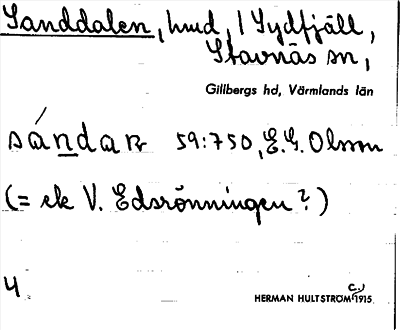 Sanddalen, hmd, i Sydfjäll,
Stavnäs sn,
Gillbergs hd, Värmlands län
sándaʀ 59:750, E.G. Olsson
(= ek V. Edsrönningen?)
4
HERMAN HULTSTRÖM c.) 1915